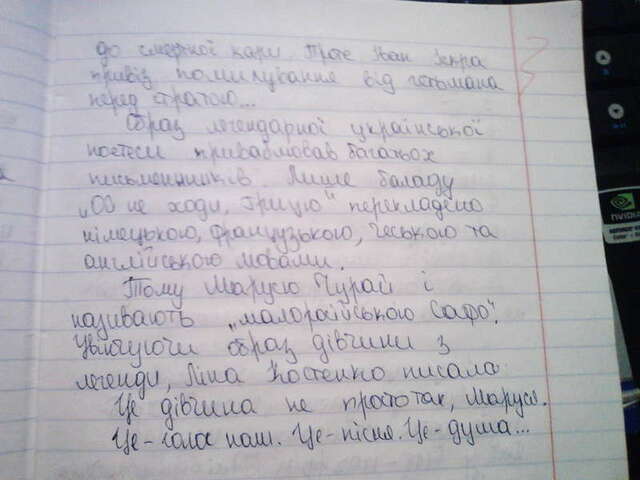 до смертної кари. Проте Іван Іскра
привіз помилування від гетьмана
перед стратою...
Образ легендарної української
поетеси приваблював багатьох
письменників. Лише баладу
„Ой не ходи, Грицю" перекладено
німецького, французького, чеського та
англійського мовами.
Тому Марусю Чурай і
називають „малоросійського Сафо".
Увінчуючи образ дівчини з
легенди, Ліна Костенко писала:
Це дівчина не просто так, Маруся.
Це - голос наш. Це - пісня. Це - душа...
nVIDIA